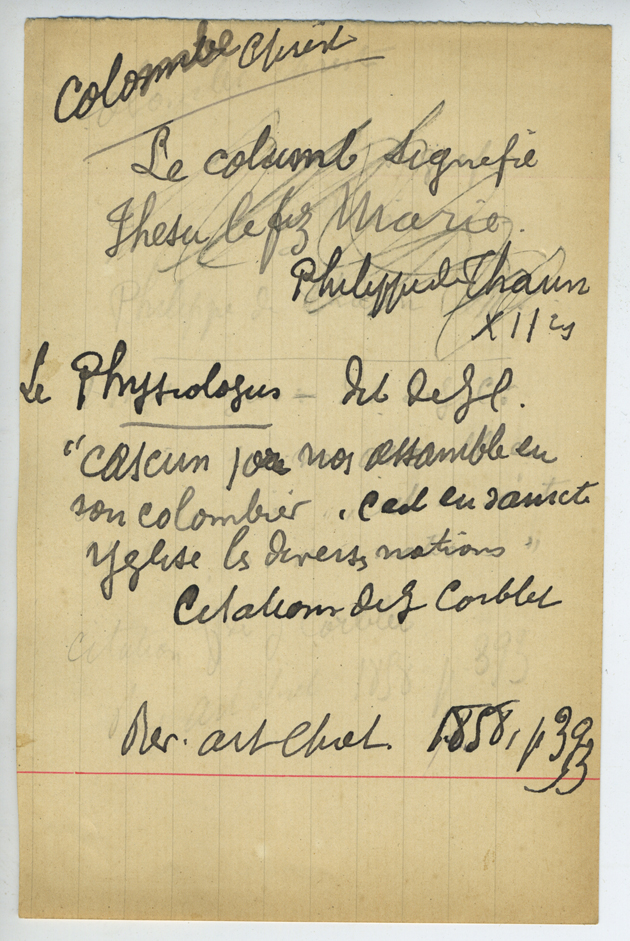 Colombe Christ
Le columb signefie
Jhesu le fiz Marie.
Philippe de Thaun
XII es
Le Physiologus - dit de J.C.
"cascun jor nos assamble en
son colombier, c'est en saincte
Yglise les diverses nations"
Citations de J Corblet
Rev. art Chret. 1858, p 393